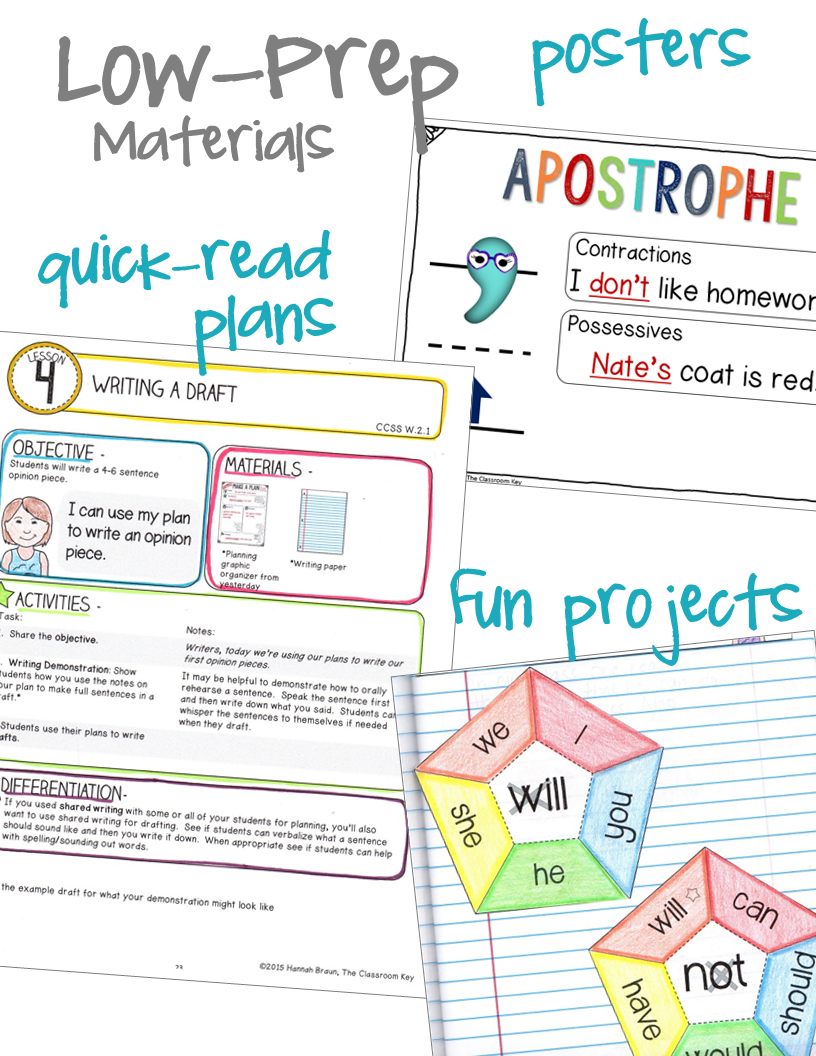 Low-Prep
Materials
posters
APOSTROPHE
Contractions
I don't like homewor
Possessives
Nate's coat is red.
The Classroom Key
quick-read
plans
LESSON
4
WRITING A DRAFT
CCSS W.2.1
OBJECTIVE -
Students will write a 4-6 sentence
opinion piece.
I can use my plan
to write an opinion
piece.
MATERIALS -
MAKE A PLAN
*Planning
graphic
organizer from
yesterday
*Writing paper
ACTIVITIES -
Task:
. Share the objective.
. Writing Demonstration: Show
tudents how you use the notes on
our plan to make full sentences in a
raft.*
Students use their plans to write
afts.
Notes:
Writers, today we're using our plans to write our
first opinion pieces.
It may be helpful to demonstrate how to orally
rehearse a sentence. Speak the sentence first
and then write down what you said. Students can
whisper the sentences to themselves if needed
when they draft.
DIFFERENTIATION-
If you used shared writing with some or all of your students for planning, you'll also
want to use shared writing for drafting. See if students can verbalize what a sentence
should sound like and then you write it down. When appropriate see if students can help
with spelling/sounding out words.
the example draft for what your demonstration might look like
©2015 Hannah Braun, The Classroom Key
fun projects
we
I
will
she
you
he
will
can
not
have
should
would